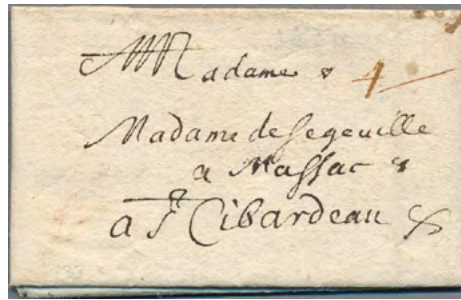 Madame
4
Madame de Segeuille
a Massac
a St Cibardeau